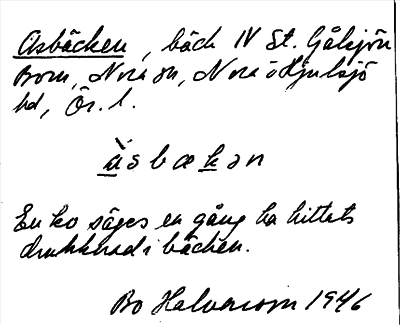 Åsbäcken, bäck NV St. Gålsjön
Born, Nora sn, Nora o Hjulsjö
hd, Ör. l.
åsbækən
En ko säges en gång ha hittats
drunknad i bäcken.
Bo Halvarson 1946